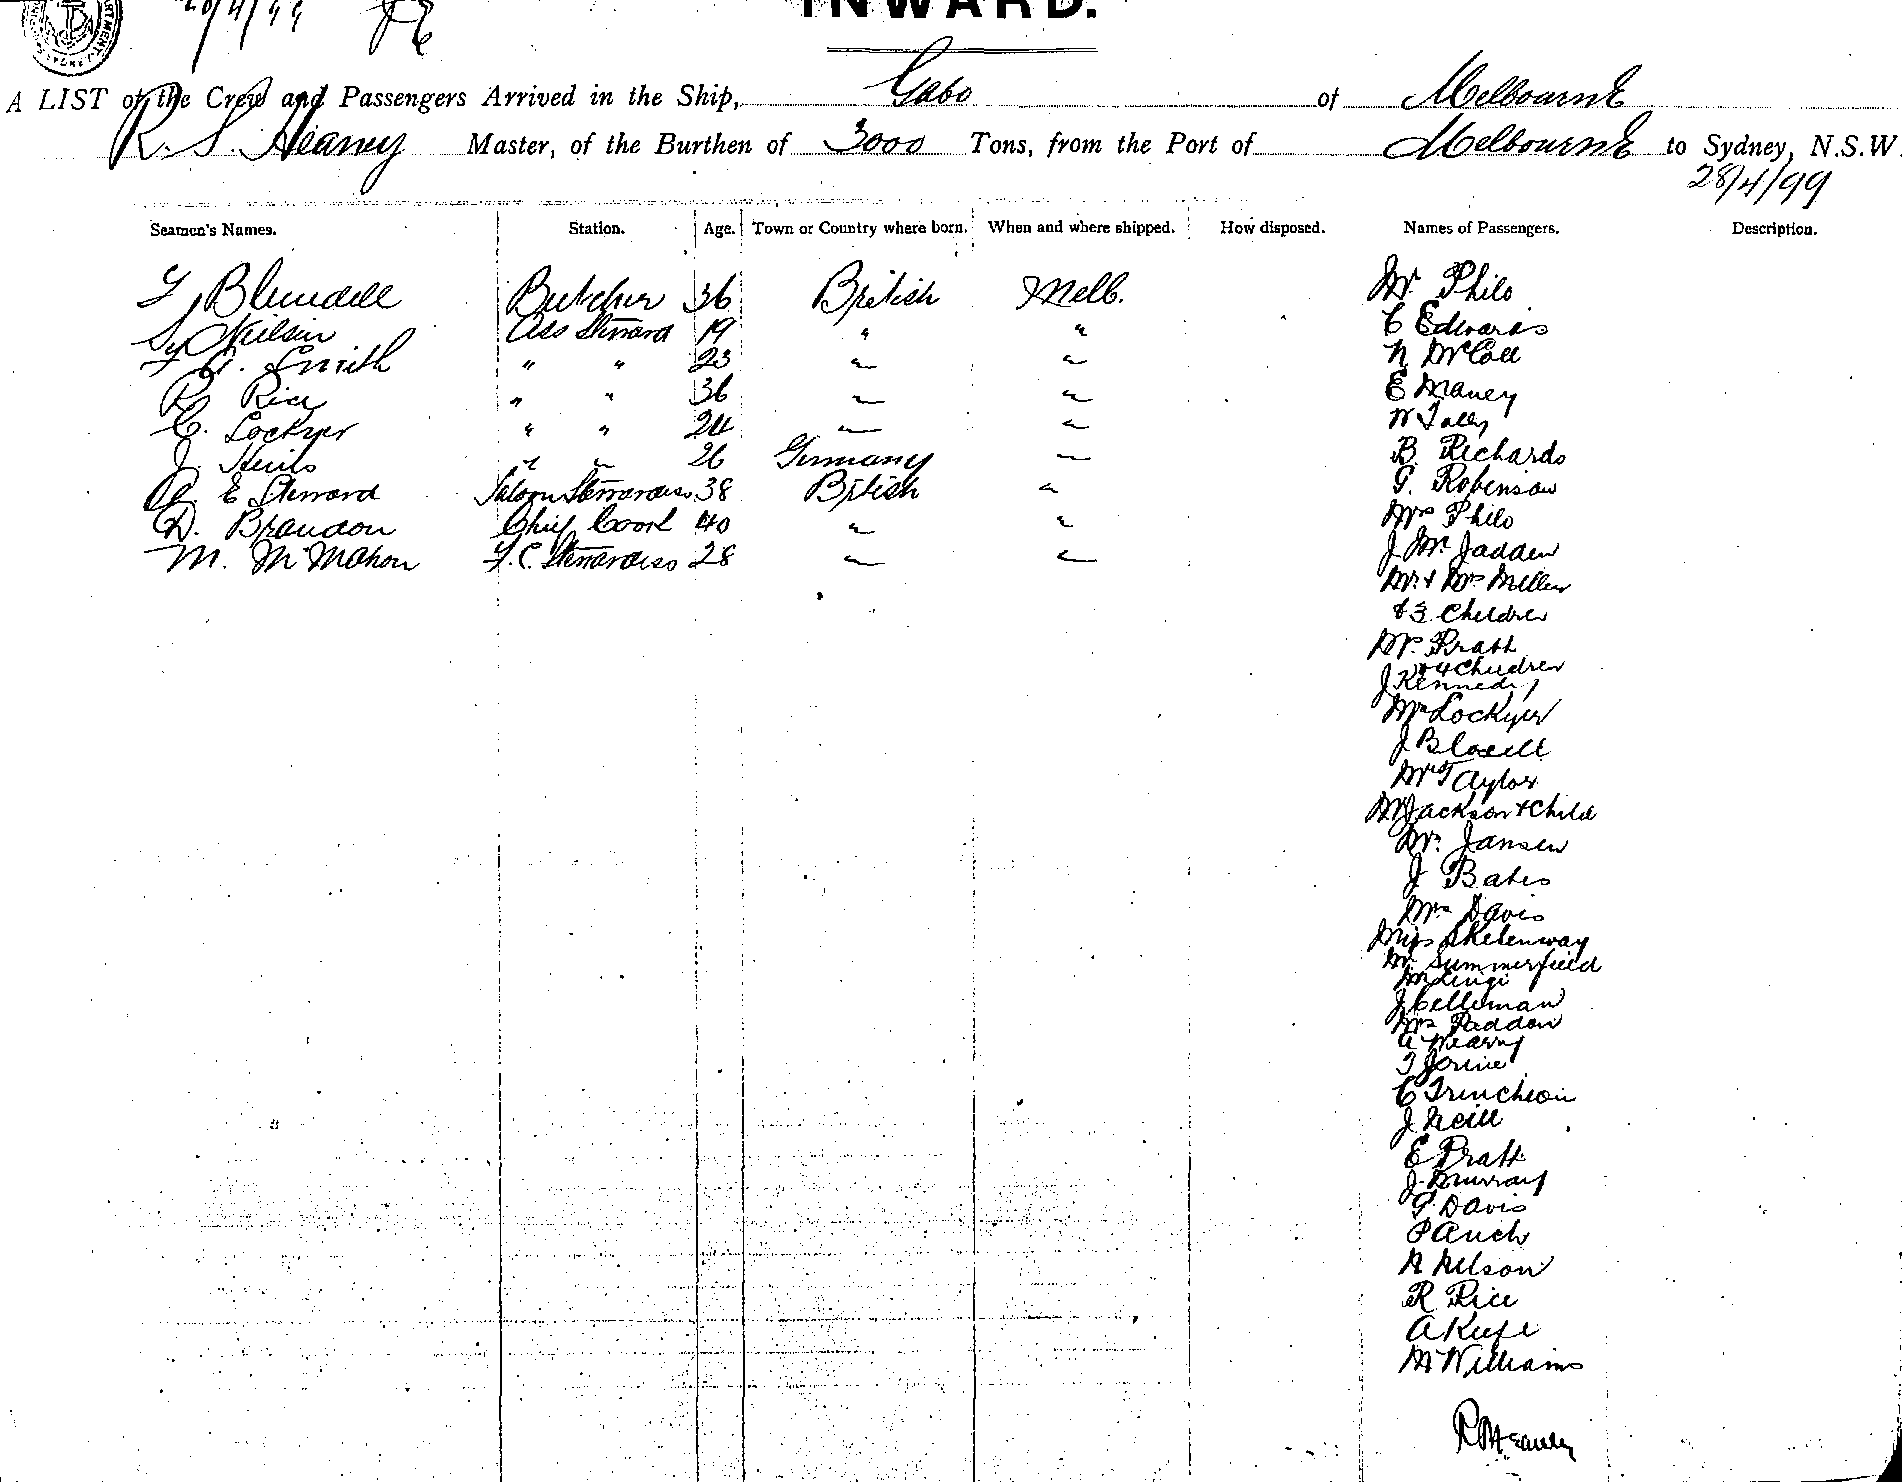 INWARD.
28/4/99
A LIST of the Crew and Passengers Arrived in the Ship, Gabo of Melbourne
R. S. Heaney Master, of the Burthen of 3000 Tons, from the Port of Melbourne to Sydney, N.S.W.
28/4/99
Seamen's Names. Station. Age. Town or Country where born. When and where shipped. How disposed. Names of Passengers. Description.
Blundell Butcher 36 British Melb. Mr Philo
Neilsen Ass Steward 19 " " C Edwards
Smith " " 23 " " N McColl
R. Rice " " 36 " " E Maney
C. Lockyer " " 24 " " W
J. " " 26 Germany " B. Richards
E Steward Saloon Stewardess 38 British " G. Robinson
D. Brandon Chief Cook 40 " " Mrs Philo
M. McMahon F.C. Stewardess 28 " " J McFadden
Mr & Mrs Miller
& 3 Children
Mrs Pratt
& 4 Children
J Kennedy
Mrs Lockyer
J
Mrs Taylor
Jackson & Child
Mr. Jansen
J Bates
Mrs Davis
Miss
Mr Summerfield
J Celleman
Mrs Paddon
A
T
C Truncheon
J Neill
E Pratt
J. Murray
G. Davis
P Auch
Nelson
R Rice
A Keefe
M Williams
R S Heaney